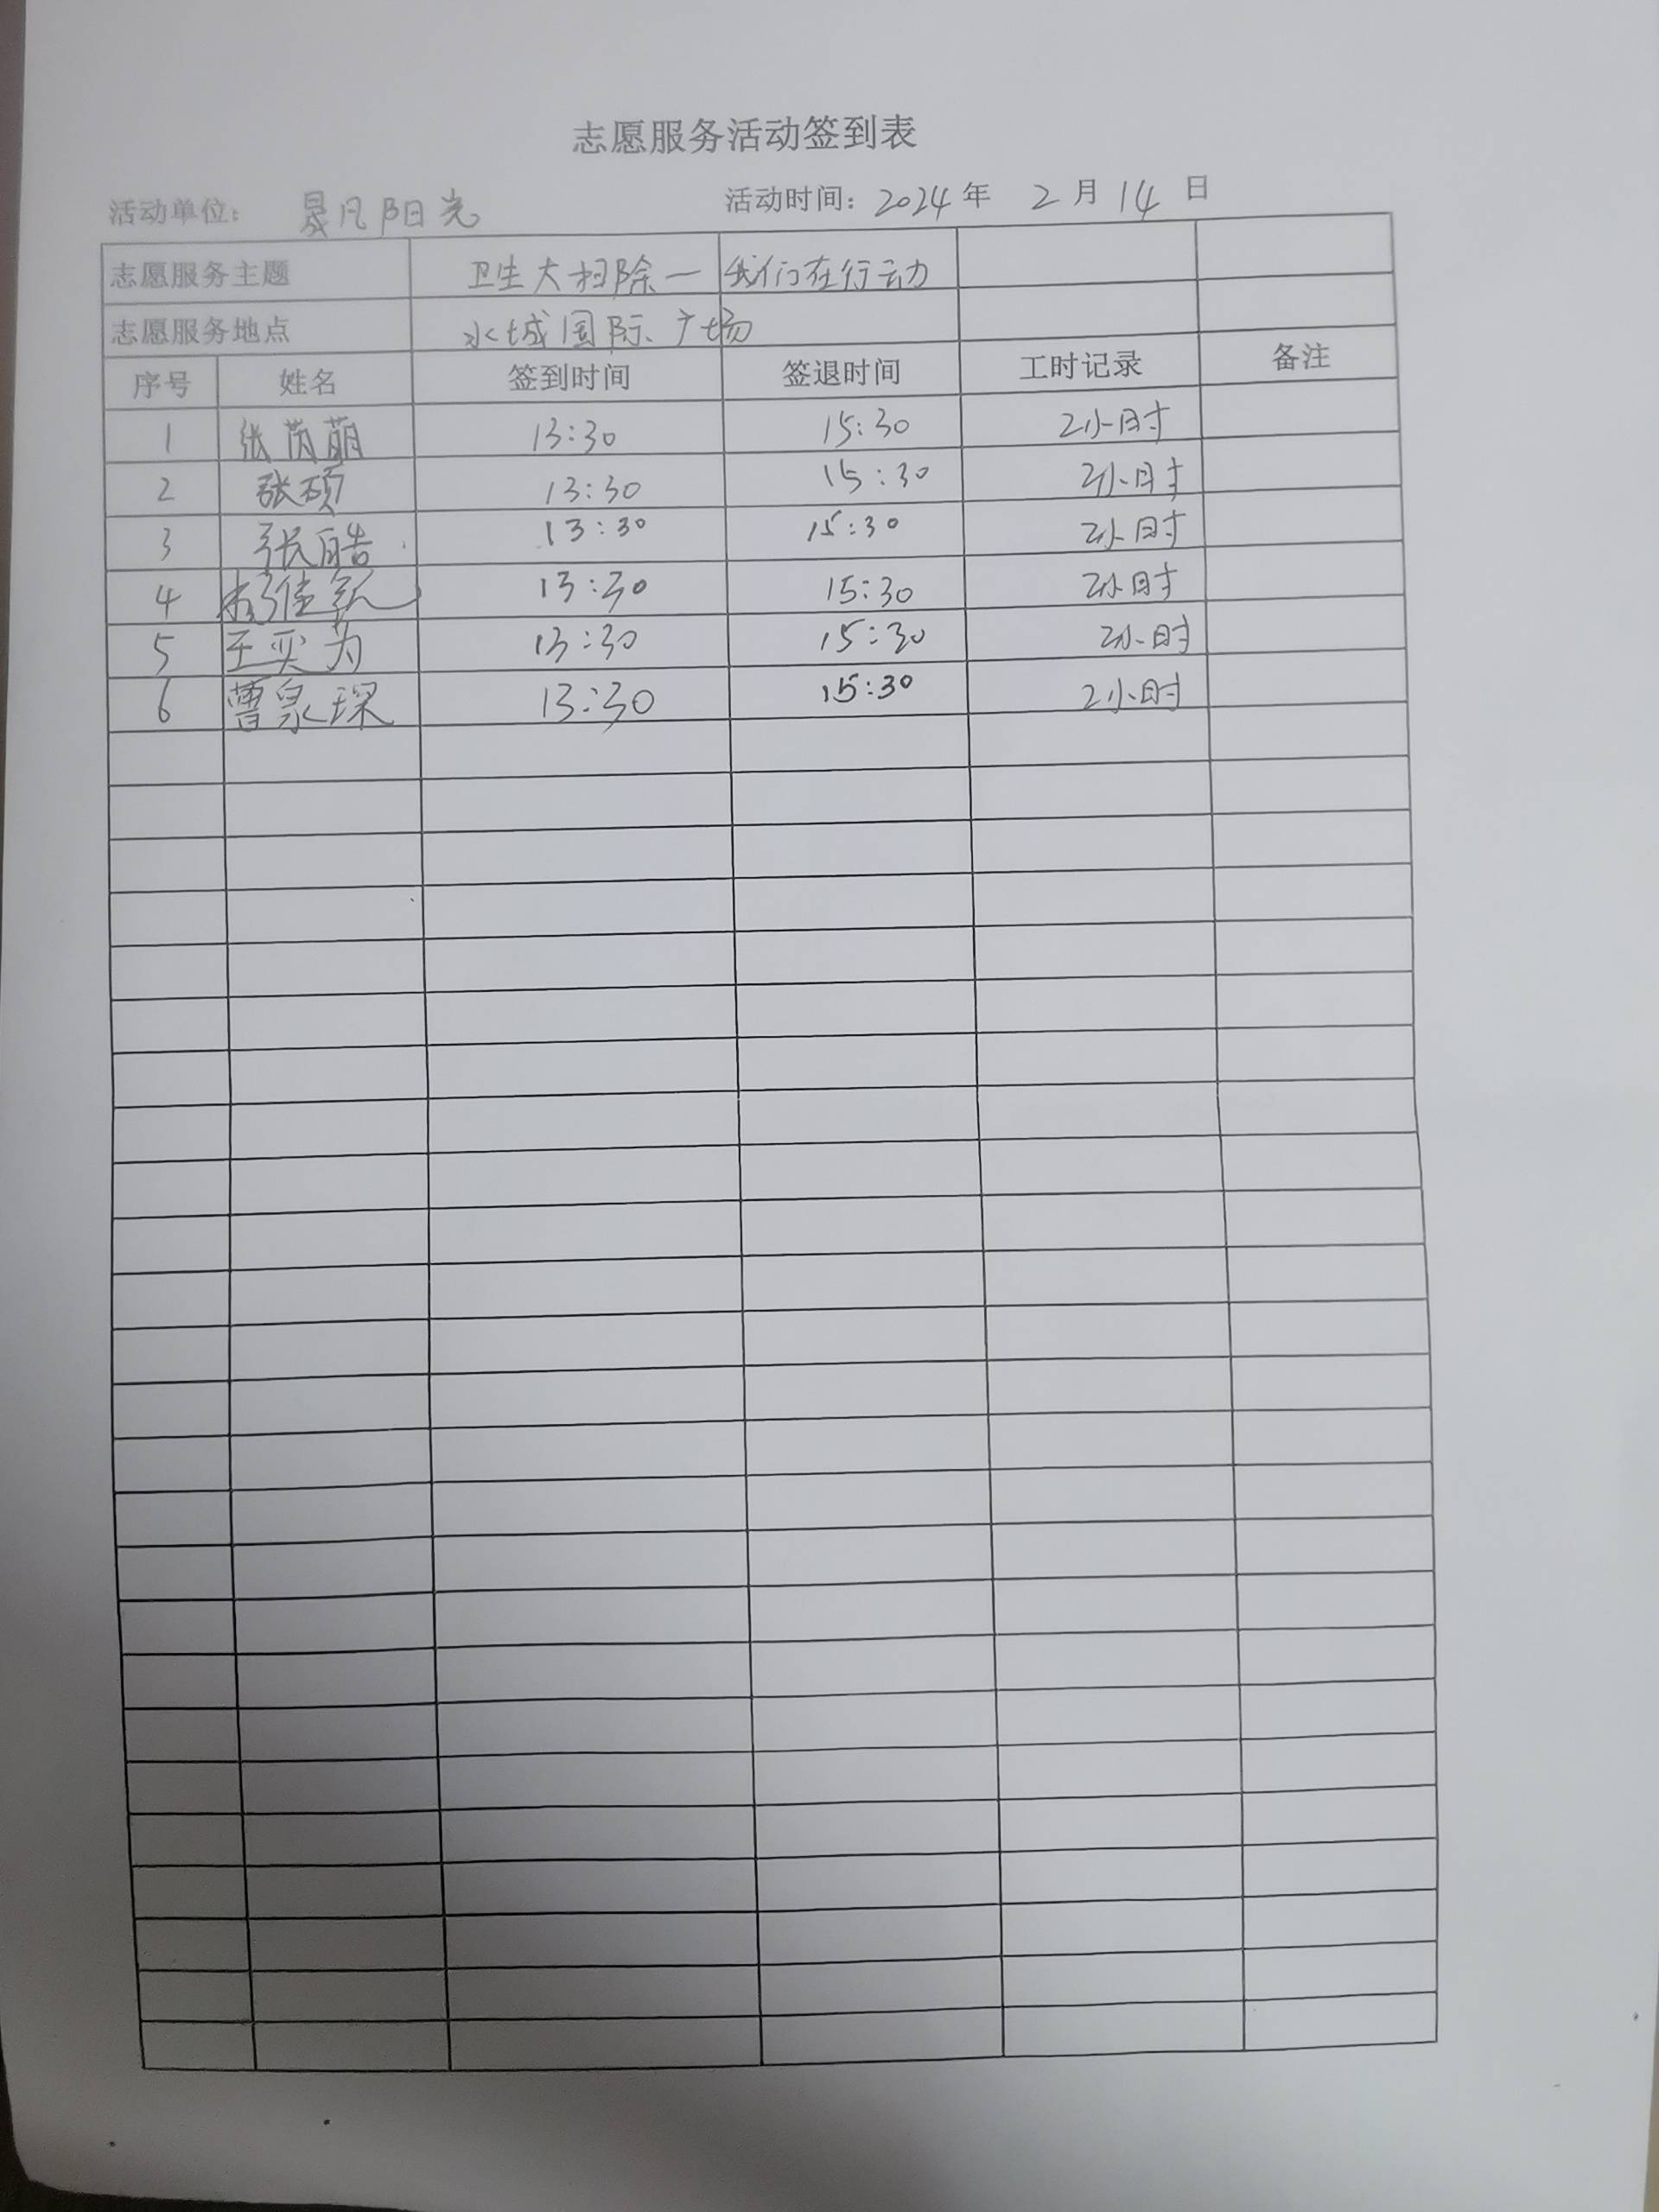 志愿服务活动签到表
活动单位: 晟凡阳光 活动时间: 2024 年 2 月 14 日
志愿服务主题 卫生大扫除一我们在行动
志愿服务地点 水城国际广场
序号 姓名 签到时间 签退时间 工时记录 备注
1 张芮萌 13:30 15:30 2小时
2 张硕 13:30 15:30 2小时
3 张皓 13:30 15:30 2小时
4 13:30 15:30 2小时
5 王奕为 13:30 15:30 2小时
6 曹泉琛 13:30 15:30 2小时